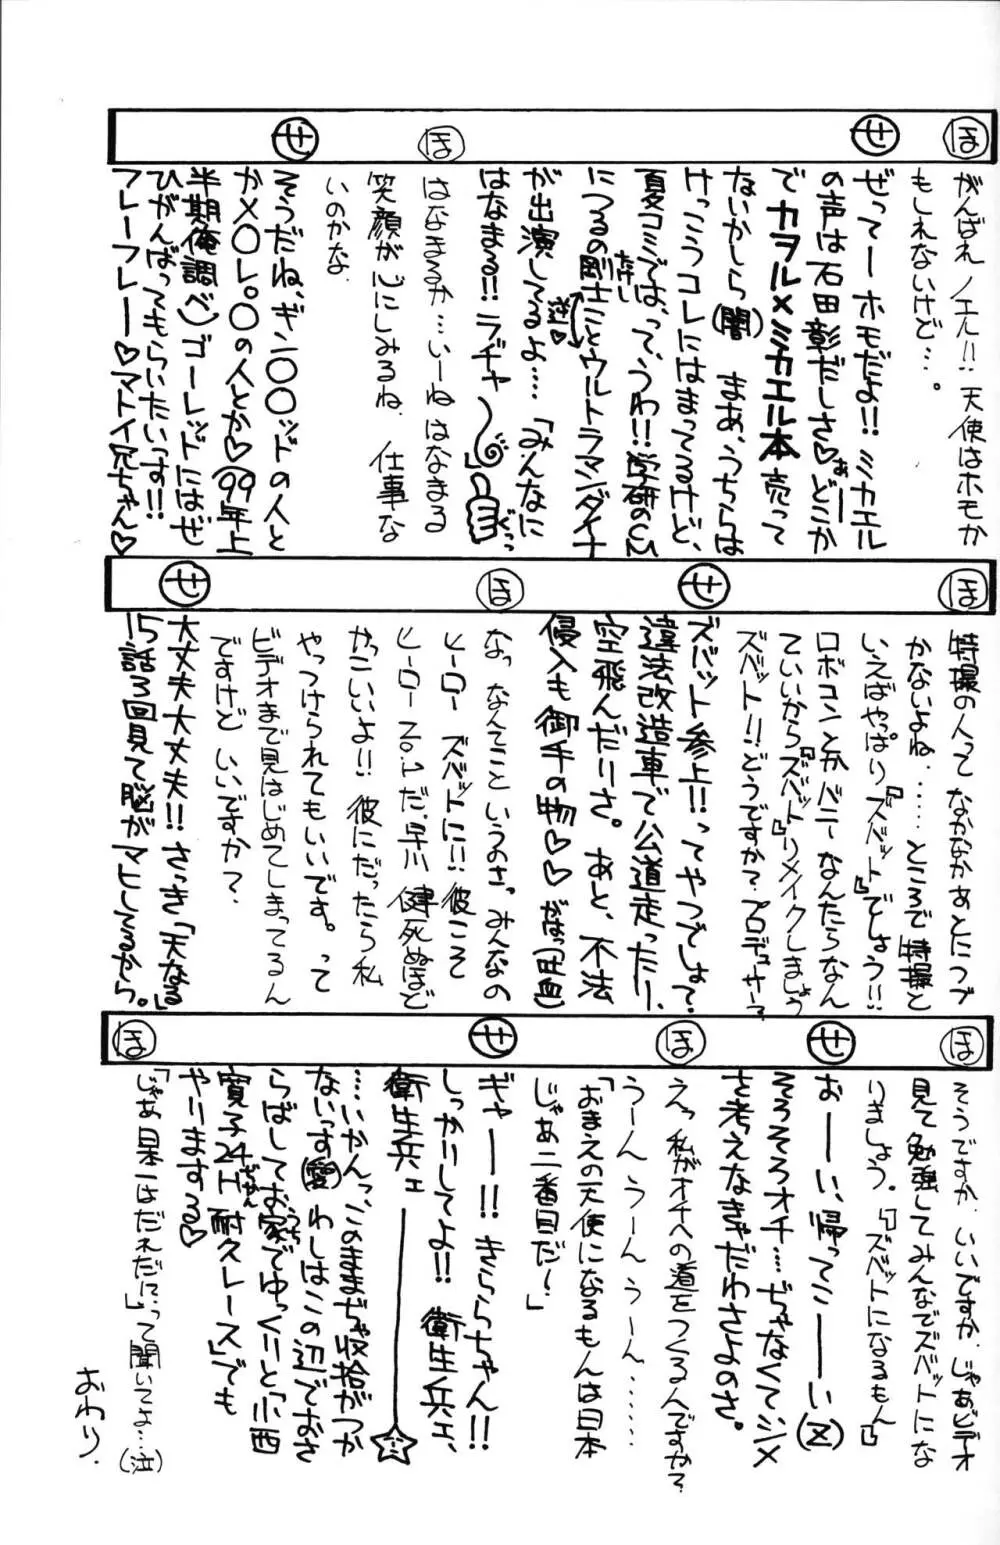 ほ
がんばれノエル!!天使はホモか
もしれないけど…。
せ
ぜってーホモだよ!!ミカエル
の声は石田彰だしさ♡あーどこか
でカヲル×ミカエル本売って
ないかしら(闇) まあ、うちらは
けっこうコレにはまってるけど、
夏コミでばって、うわ!!学研のCM
につるの剛士ことウルトラマンダイナ
が出演してるよ……「みんなに
はなまる!!ラヂャー」ぐっっ
ほ
はなまるか…いーねはなまる
笑顔が心にしみるね、仕事な
いのかな
せ
そうだね、ギン〇〇〇ッドの人と
かメ〇レ〇〇の人とか♡(99年上
半期俺調べ)ゴーレッドにはぜ
ひがんばってもらいたいっす!!
フレーフレー♡マトイ兄ちゃん♡
ほ
特撮の人ってなかなかあとにつづ
かないよね………ところで特撮と
いえばやっぱり『ズバット』でしょう!!
ロボコンとかバニーなんたらなん
ていいから『ズバット』リメイクしましょう
ズバット!!どうですか?プロデューサー?
せ
ズバット参上!!ってやつでしょ?
違法改造車で公道走ったり、
空飛んだりさ。あと、不法
侵入も御手の物♡♡がはっ(吐血)
ほ
なっなんてこというのさっみんなの
ヒーローズバットに!!彼こそ
ヒーローNo.1だ、早川 健死ぬほど
かっこいいよ!!彼にだったら私
やっつけられてもいいです。って
ビデオまで見はじめてしまってるん
ですけどいいですか?
せ
大丈夫大丈夫!!さっき「天なる」
15話3回見て脳がマヒしてるから。
ほ
そうですか、いいですか、じゃあビデオ
見て勉強してみんなでズバットにな
りましょう。『「ズバットになるもん」』
せ
おーい、帰ってこーい(Z)
そろそろオチ……ぢゃなくてシメ
を考えなきゃだわさよのさ。
ほ
えっ私がオチへの道をつくる人ですか?
うーんうーんうーん……
「おまえの天使になるもんは日本
じゃあ二番目だ!」
せ
ギャー!!きららちゃん!!
しっかりしてよ!!衛生兵ェ、
衛生兵ェ
……いかんっ、このままぢゃ収拾がつか
ないっす(愛)わしはこの辺でおさ
らばしてお家でゆっくりと「小西
寛子24ぢかん耐久レース」でも
やりまする♡
ほ
「じゃあ日本一はだれだい」って聞いてよ…(泣)
おわり.